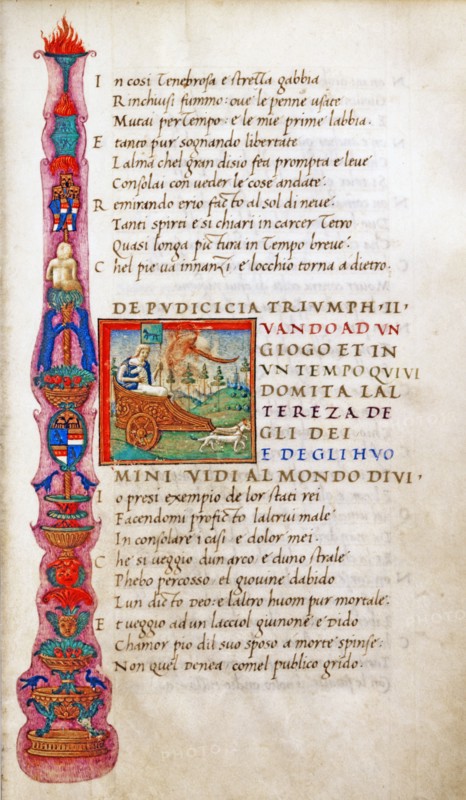 In cosi Tenebrosa e strella gabbia
Rinchiusi fummo: oue le penne usate
Mutai per Tempo: e le mie prime labbia.
E tanto pur sognando libertate
L alma chel gran disio fea prompta e leue
Consolai con ueder le cose andate.
Remirando er io facto al sol di neue.
Tanti spirti e si chiari in carcer Tetro
Quasi longa pictura in Tempo breue.
Chel pie ua innanzi e locchio torna a dietro.
DE PVDICICIA TRIVMPH · II ·
QVANDO AD VN
GIOGO ET IN
VN TEMPO QVIVI
DOMITA LAL
TEREZA DE
GLI DEI
E DEGLI HVO
MINI VIDI AL MONDO DIVI ·
Io presi exempio de lor stati rei
Facendomi proficto lalerui male
In consolare i casi e dolor mei.
Che si ueggio dun arco e duno strale
Phebo percosso el giouine dabido
Lun dicto Deo: e laltro huom pur mortale.
Et ueggio ad un lacciol giunone: e Dido
Chamor pio dil suo sposo a morte spinse:
Non quel denea comel publico grido.